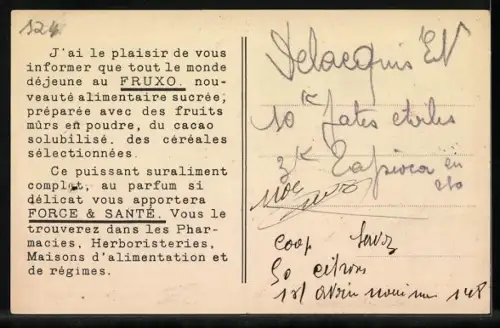 324
J'ai le plaisir de vous
informer que tout le monde
déjeune au FRUXO, nou-
veauté alimentaire sucrée,
préparée avec des fruits
mûrs en poudre, du cacao
solubilisé, des céréales
sélectionnées.
Ce puissant suraliment
complet, au parfum si
délicat vous apportera
FORCE & SANTÉ. Vous le
trouverez dans les Phar-
macies, Herboristeries,
Maisons d'alimentation et
de régimes.
10 K pates etoiles
3 K Tapioca en
coop
50 citrons
148